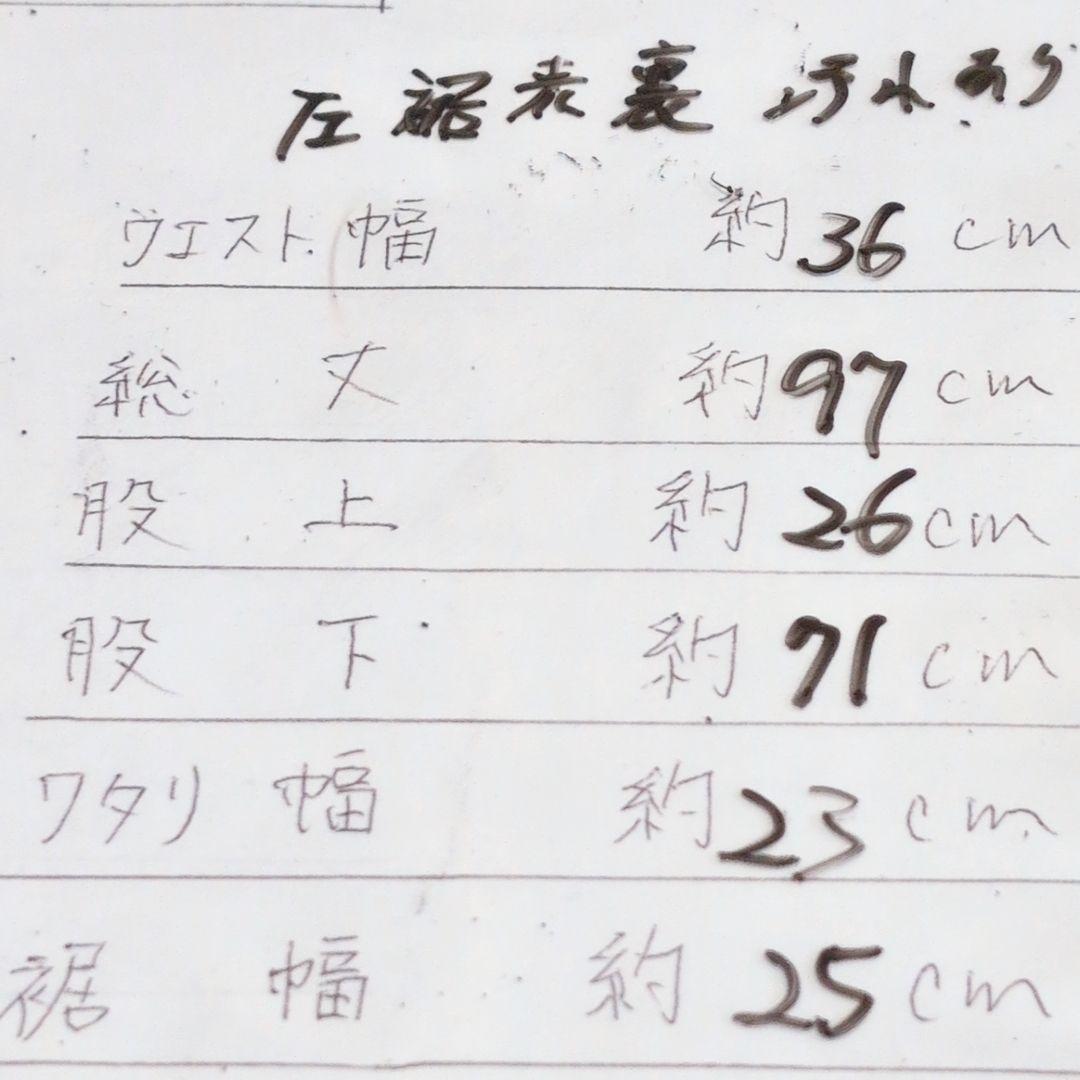 左裾表裏 汚れあり
ウエスト幅 約36cm
総丈 約97cm
股上 約26cm
股下 約71cm
ワタリ幅 約23cm
裾幅 約25cm